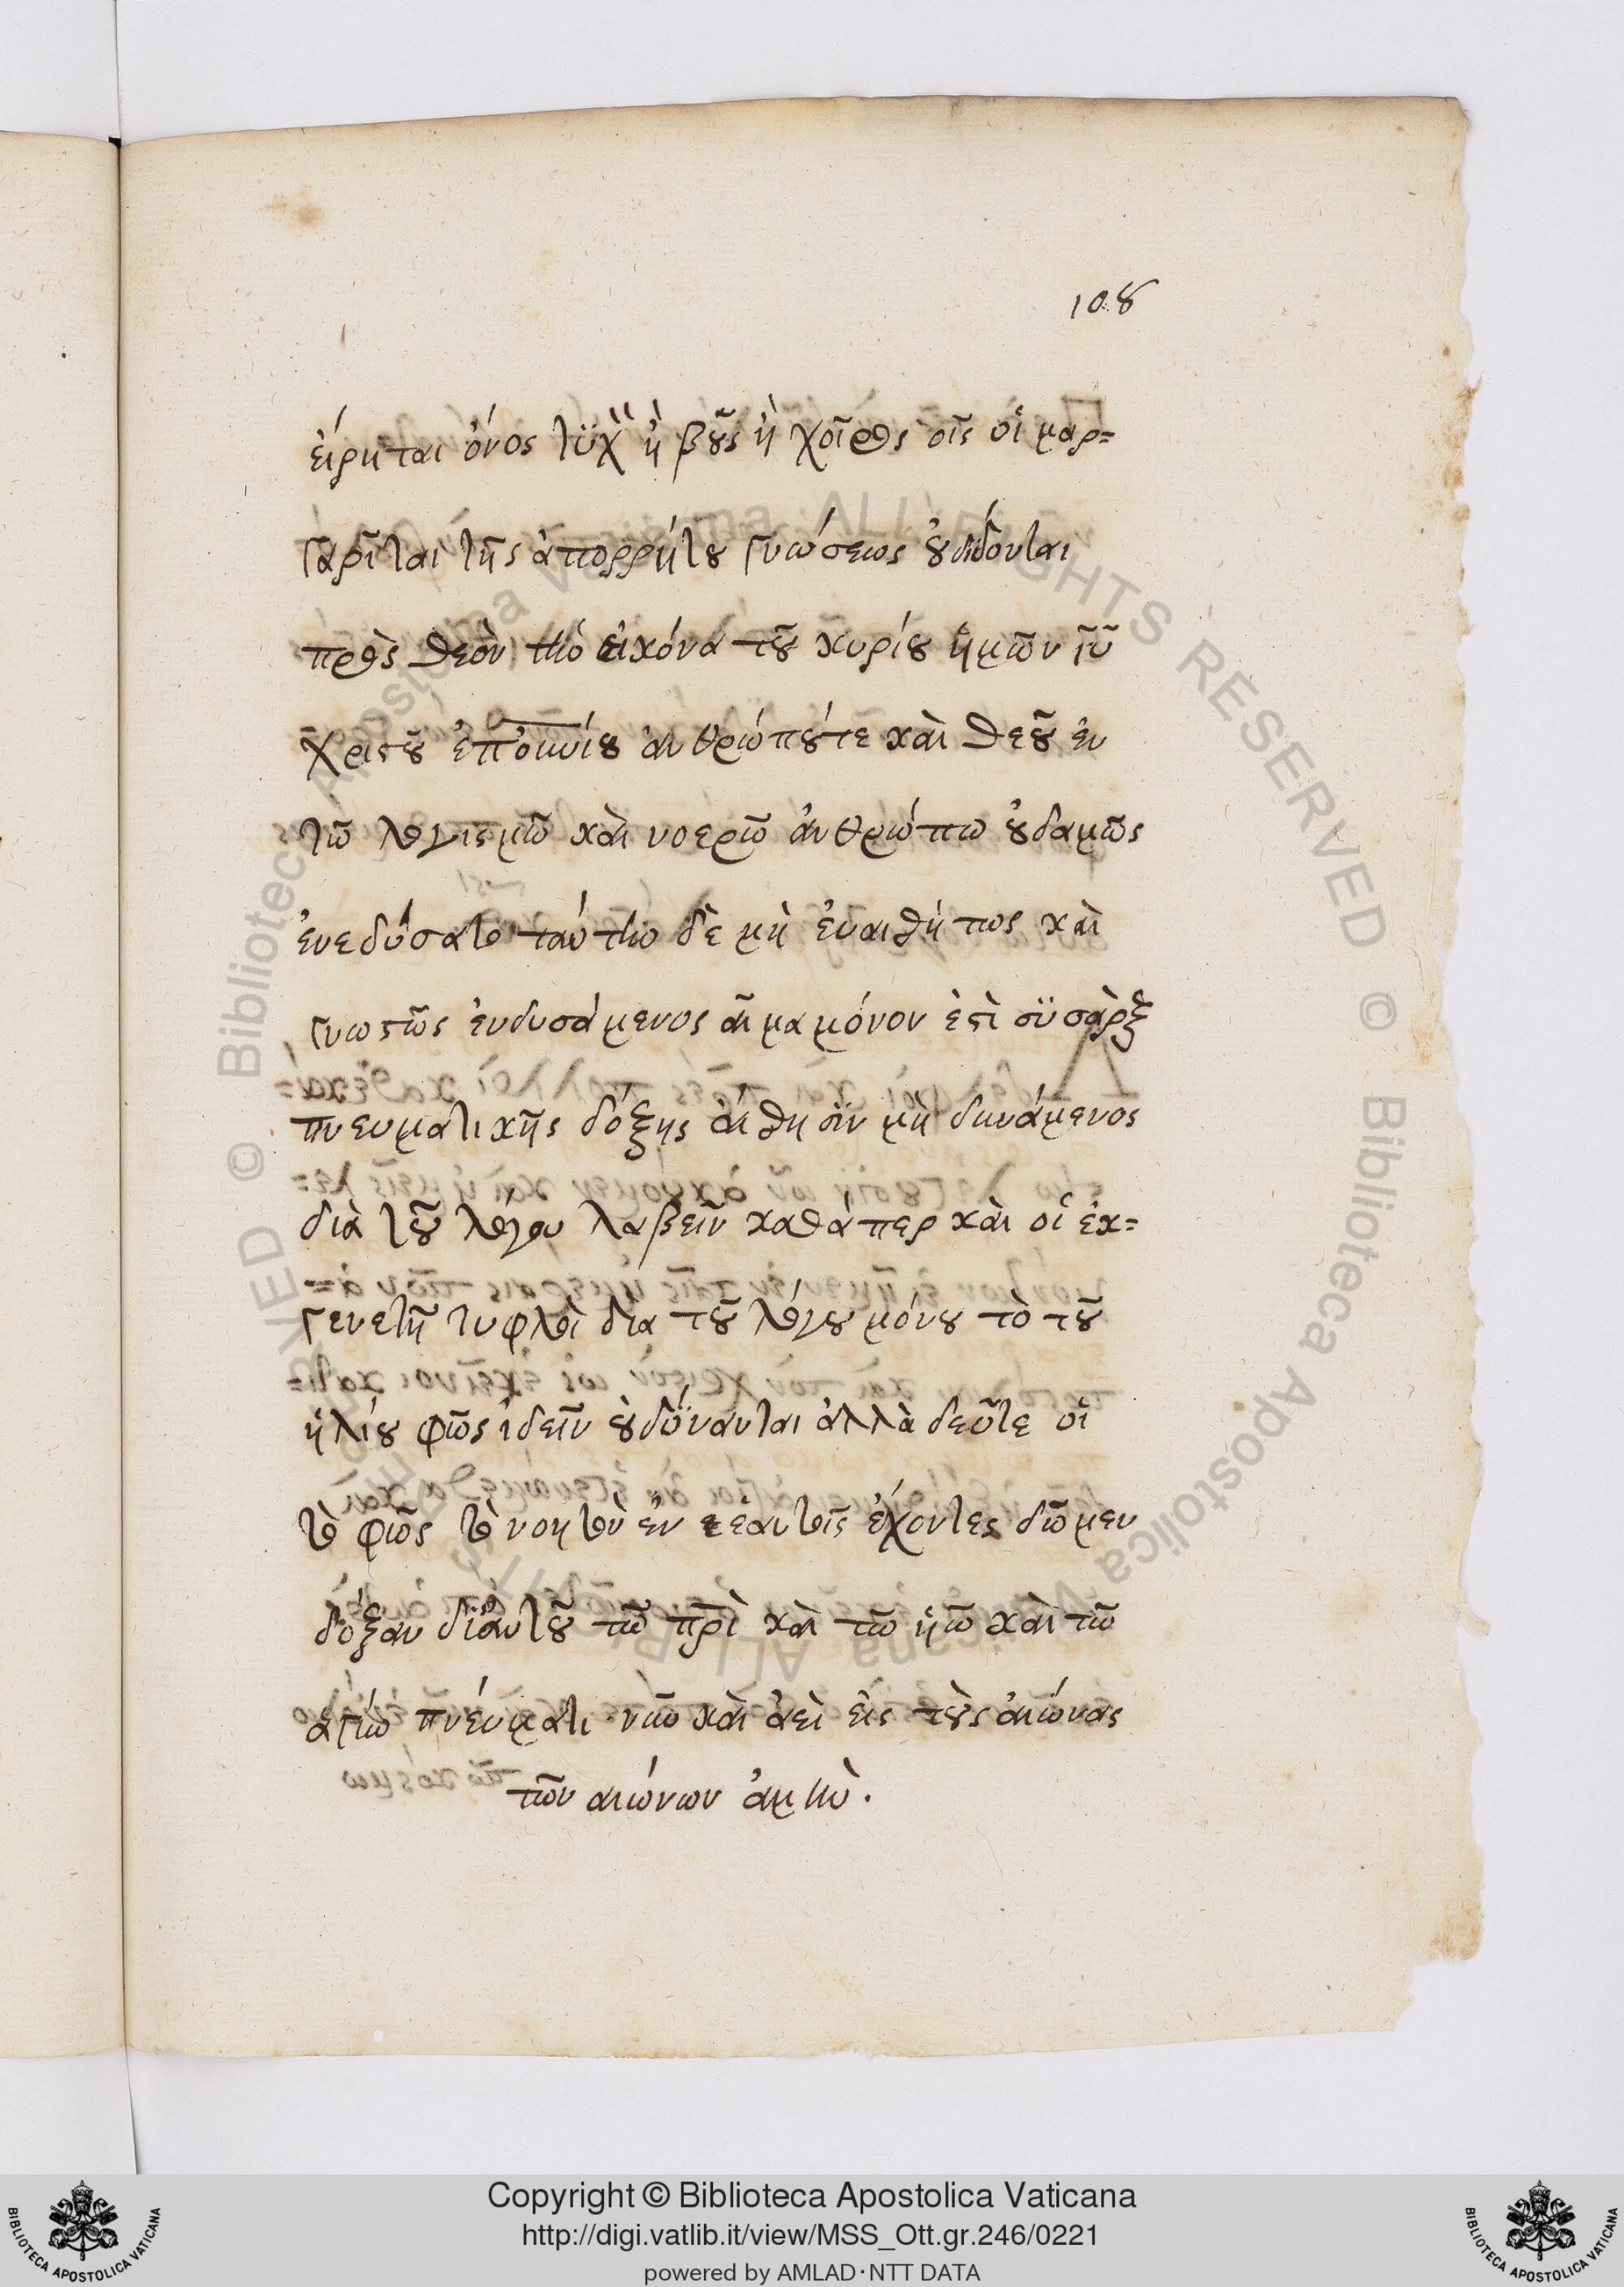 108
εἴρηται ὄνος τϋχ̏ ἢ βοῦς ἢ χοῖρος οἷς οἱ μαρ=
γαρῖται τῆς ἀπορρήτου γνώσεως οὐδίδονται
πρὸς θεὸν τὴν εἰκόνα τοῦ κυρίου ἡμῶν ἰῦ
χριστοῦ ἐπουνίου ἀνθρώπουτε καὶ θεοῦ ἐν
τῶ λογισμῶ καὶ νοερῶ ἀνθρώπω οὐδαμῶς
ἐνεδύσατο ταύτην δὲ μὴ ἐναιθήτως καὶ
γνωστῶς ἐνδυσάμενος αἷμα μόνον ἐστὶ σϋ σὰρξ
πνευματικῆς δόξης αἴθησϊν μὴ δυνάμενος
διὰ τοῦ λόγου λαβεῖν καθάπερ καὶ οἱ ἐκ=
γενετῆ τυφλοὶ δια τοῦ λόγου μόνου τὸ τοῦ
ἡλίου φῶς ἰδεῖν οὐδύνανται ἀλλὰ δεῦτε οἱ
τὸ φῶς τὸ νοητὸν ἐν εεαυτοῖς ἔχοντες δῶμεν
δόξαν δϊαυτοῦ τῶ πρ̅ὶ καὶ τῶ ὑῶ καὶ τῶ
ἁγίω πνεύματι νῦν καὶ ἀεὶ εἰς τοὺς αἰώνας
τῶν αιώνων ἀμὴν.
Copyright © Biblioteca Apostolica Vaticana
http://digi.vatlib.it/view/MSS_Ott.gr.246/0221
powered by AMLAD·NTT DATA
BIBLIOTECA APOSTOLICA VATICANA
BIBLIOTECA APOSTOLICA VATICANA